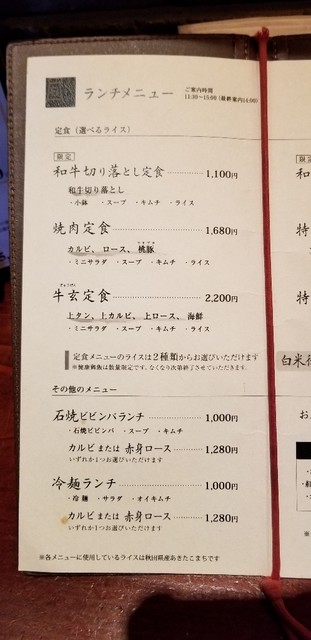 ランチメニュー
ご案内時間
11:30～15:00（最終案内14:00）
定食（選べるライス）
限定
和牛切り落とし定食 1,100円
和牛切り落とし
・小鉢 ・スープ ・キムチ ・ライス
焼肉定食 1,680円
カルビ、ロース、桃豚
・ミニサラダ ・スープ ・キムチ ・ライス
牛玄定食 2,200円
上タン、上カルビ、上ロース、海鮮
・ミニサラダ ・スープ ・キムチ ・ライス
定食メニューのライスは2種類からお選びいただけます
※健康御飯は数量限定です。なくなり次第終了させていただきます。
その他のメニュー
石焼ビビンバランチ 1,000円
・石焼ビビンバ ・スープ ・キムチ
カルビ または 赤身ロース 1,280円
いずれか1つお選びいただけます
冷麺ランチ 1,000円
・冷麺 ・サラダ ・オイキムチ
カルビ または 赤身ロース 1,280円
いずれか1つお選びいただけます
※各メニューに使用しているライスは秋田県産あきたこまちです
限定
和
特
特
白米
お